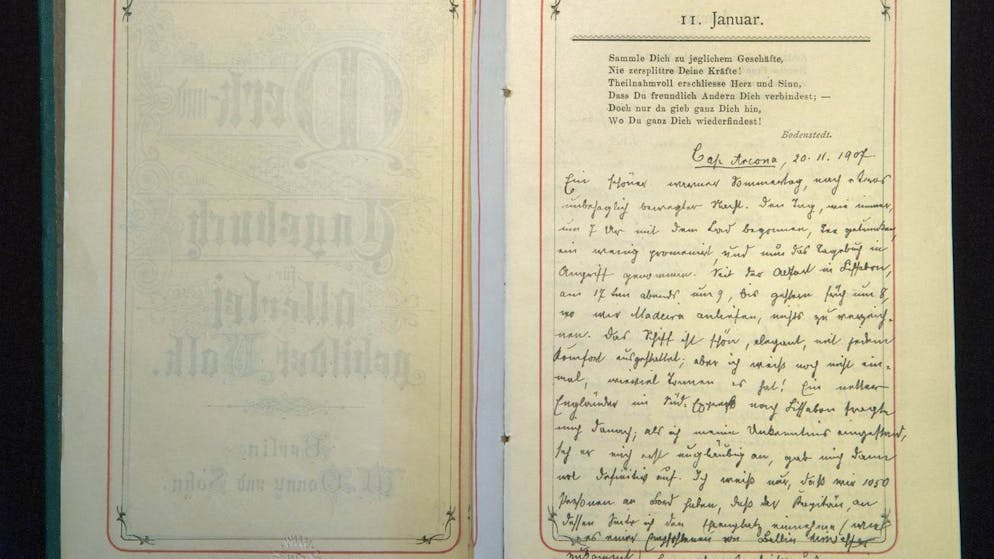 Denk- und
Tagebuch
für
allerlei
gebildet Volk.
Berlin
und Sohn.
11. Januar.
Sammle Dich zu jeglichem Geschäfte,
Nie zersplittre Deine Kräfte!
Theilnahmvoll erschliesse Herz und Sinn,
Dass Du freundlich Andern Dich verbindest; —
Doch nur da gieb ganz Dich hin,
Wo Du ganz Dich wiederfindest!
Bodenstedt.
Cap Arcona, 20. 11. 1907
Ein schöner warmer Sommertag, nach etwas
unbehaglich bewegter Nacht. Den Tag, wie immer,
um 7 Uhr mit dem Bad begonnen, Tee getrunken,
ein wenig promenirt, und nun das Tagebuch in
Angriff genommen. Seit der Abfart in Lissabon,
am 17ten abends um 9, bis gestern früh um 8,
wo wir Madeira anliefen, nichts zu verzeich-
nen. Das Schiff ist schön, elegant, mit jedem
Komfort ausgestattet; aber ich weiß noch nicht ein-
mal, wieviel Tonnen es hat! Ein netter
Engländer im Süd-Express nach Lissabon fragte
mich danach; als ich meine Unkenntnis eingestand,
sah er mich erst ungläubig an, gab mich dann
wol definitiv auf. Ich weiß nur, daß wir 1050
Personen an Bord haben, daß der Kapitän, an
dessen Seite ich den Ehrenplatz einnehme (wie
es einer Empfohlenen von